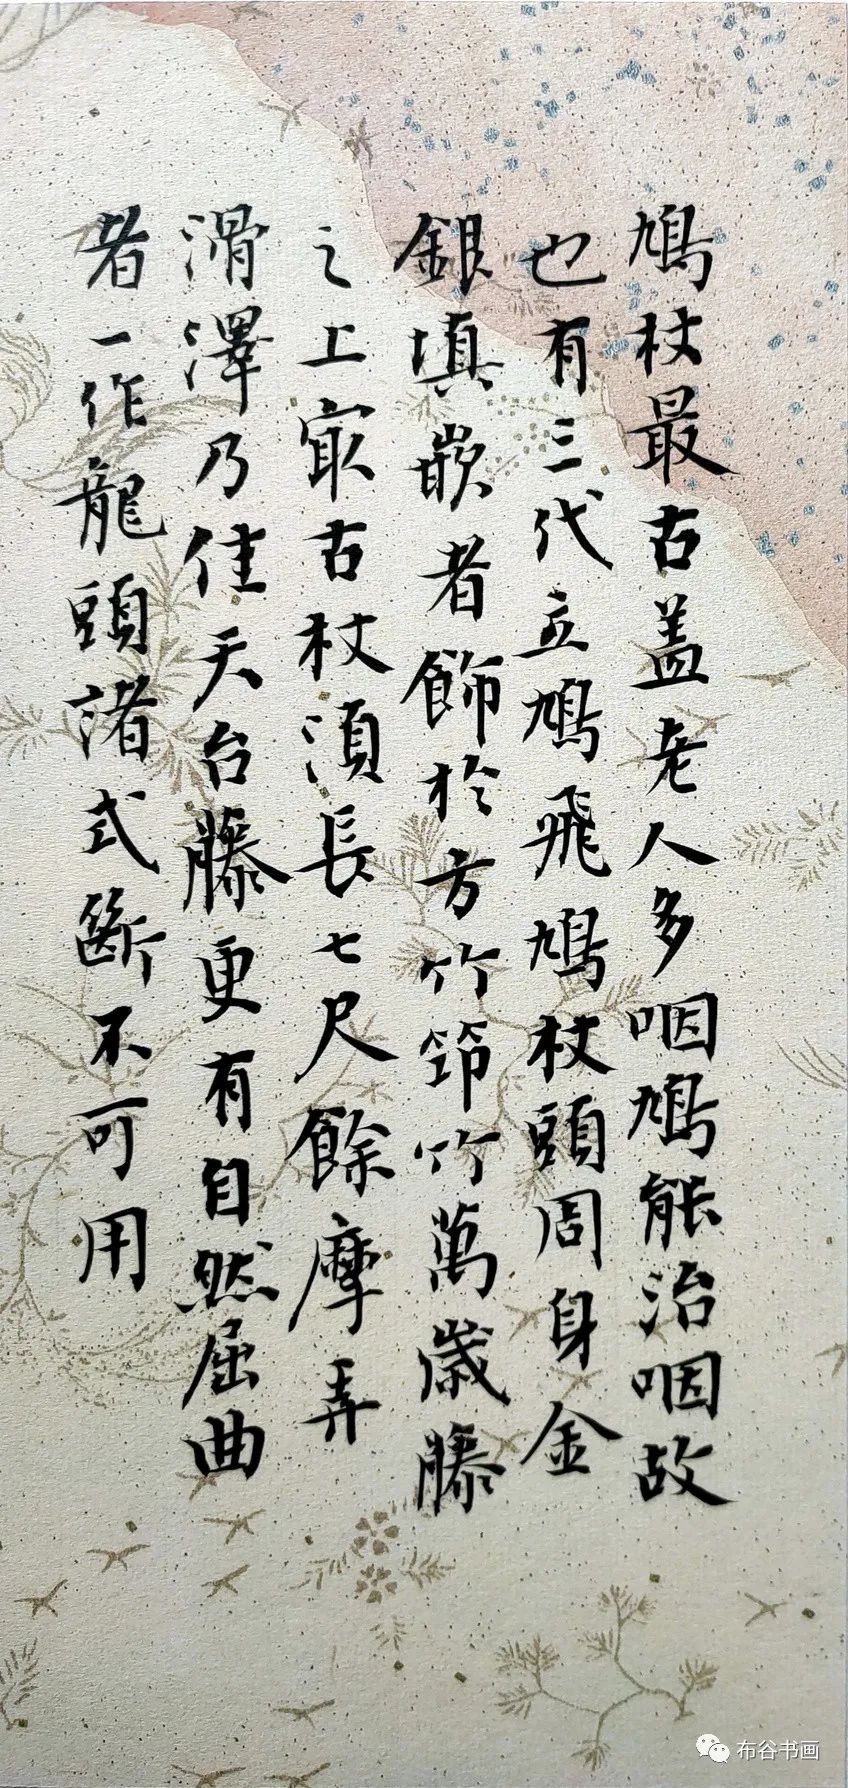 鳩杖最古盖老人多咽鳩能治咽故
也有三代立鳩飛鳩杖頭周身金
銀填嵌者飾於方竹筇竹萬歲藤
之上㝡古杖湏長七尺餘摩弄
滑澤乃佳天台藤更有自然屈曲
者一作龍頭諸式斷不可用
布谷书画